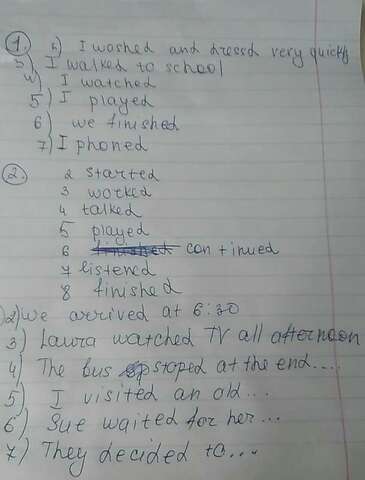 1. 2) I washed and dressd very quickly
3) I walked to school
4) I watched
5) I played
6) we finished
7) I phoned
2. 2 started
3 worked
4 talked
5 played
6 finished con tinued
7 listened
8 finished
2) We arrived at 6:30
3) Laura watched TV all afternoon
4) The bus stoped at the end....
5) I visited an old...
6) Sue waited for her...
7) They decided to...